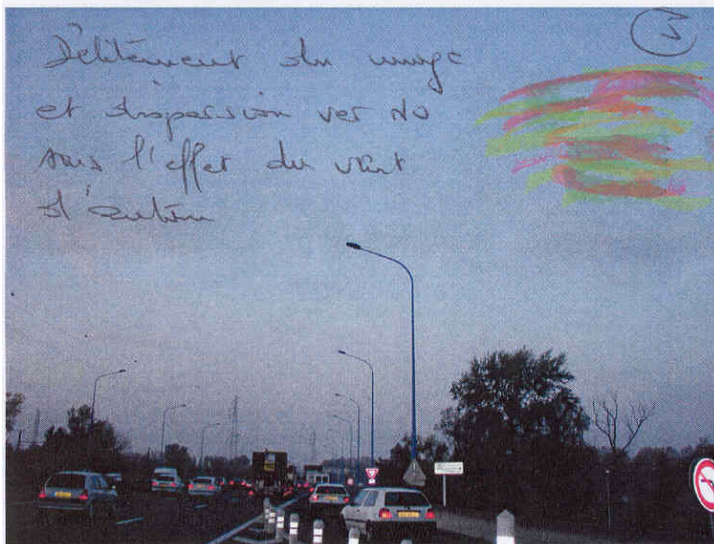 3
Délitement du nuage
et dispersion ver NO
sous l'effet du vent
d'autan